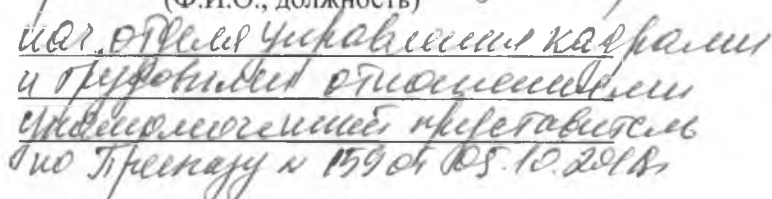 (Ф.И.О., должность)
нач. отдела управления кадрами
и трудовыми отношениями
уполномоченный представитель
по Приказу № 159 от 05.10.2018